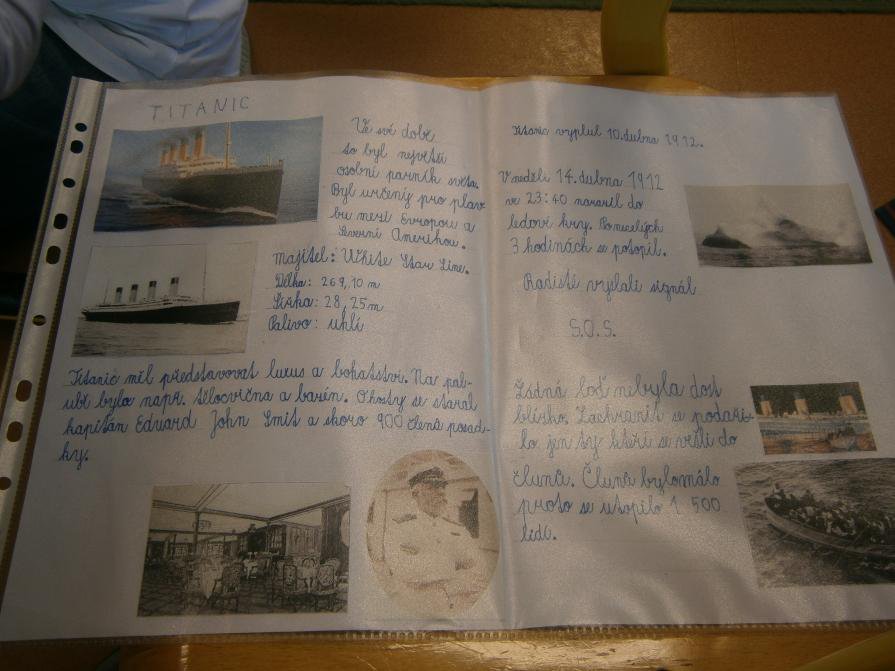 TITANIC
Ve své době
to byl největší
osobní parník světa.
Byl určený pro plav
bu mezi Evropou a
Severní Amerikou.
Majitel: White Star Line.
Délka: 269,10 m
Šířka: 28,25 m
Palivo: uhlí
Titanic měl představovat luxus a bohatství. Na pal-
ubě byla např. tělocvična a bazén. O hosty se staral
kapitán Eduard John Smit a skoro 900 členů posád-
ky.
Titanic vyplul 10. dubna 1912.
V neděli 14. dubna 1912
ve 23:40 narazil do
ledové kry. Po necelých
3 hodinách se potopil.
Radisté vyslali signál
S.O.S.
Žádná loď nebyla dost
blízko. Zachránit se podaři-
lo jen ty kteří se vešli do
člunů. Člunů bylo málo
proto se utopilo 1 500
lidí.